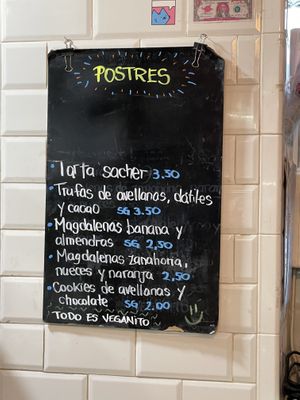 POSTRES
• Tarta sacher 3.50
• Trufas de avellanas, dátiles
y cacao SG 3.50
• Magdalenas banana y
almendras SG 2,50
• Magdalenas zanahoria,
nueces y naranja 2,50
• Cookies de avellanas y
chocolate SG 2.00
TODO ES VEGANITO